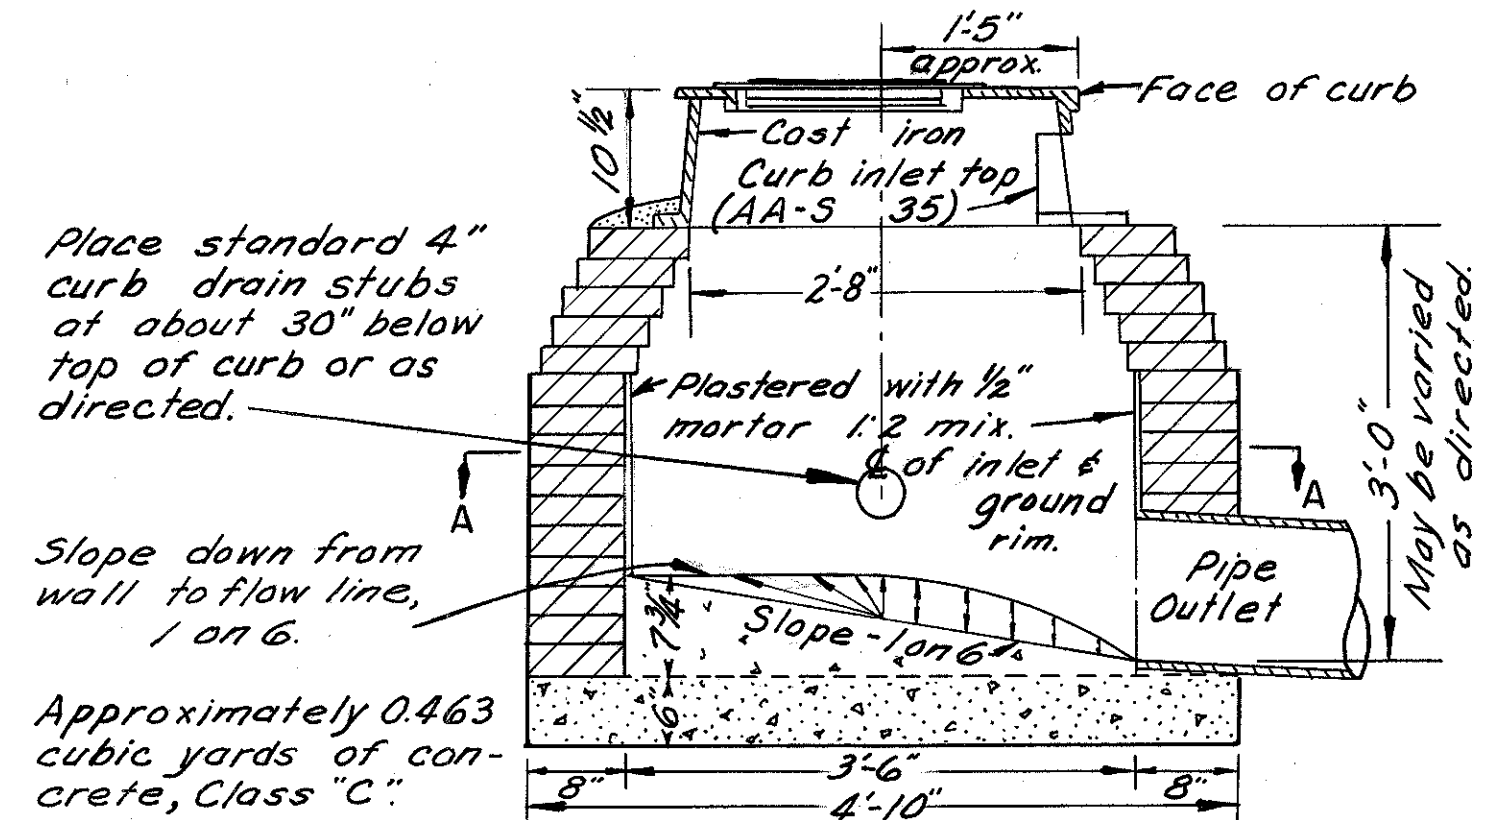 1'-5"
approx.
Face of curb
10 1/2"
Cast iron
Curb inlet top
(AA-S 35)
Place standard 4"
curb drain stubs
at about 30" below
top of curb or as
directed.
2'-8"
Plastered with 1/2"
mortar 1:2 mix.
℄ of inlet &
ground
rim.
A
A
3'-0"
May be varied
as directed.
Slope down from
wall to flow line,
1 on 6.
Pipe
Outlet
7 3/4"
Slope - 1 on 6
6"
Approximately 0.463
cubic yards of con-
crete, Class "C".
8"
3'-6"
8"
4'-10"